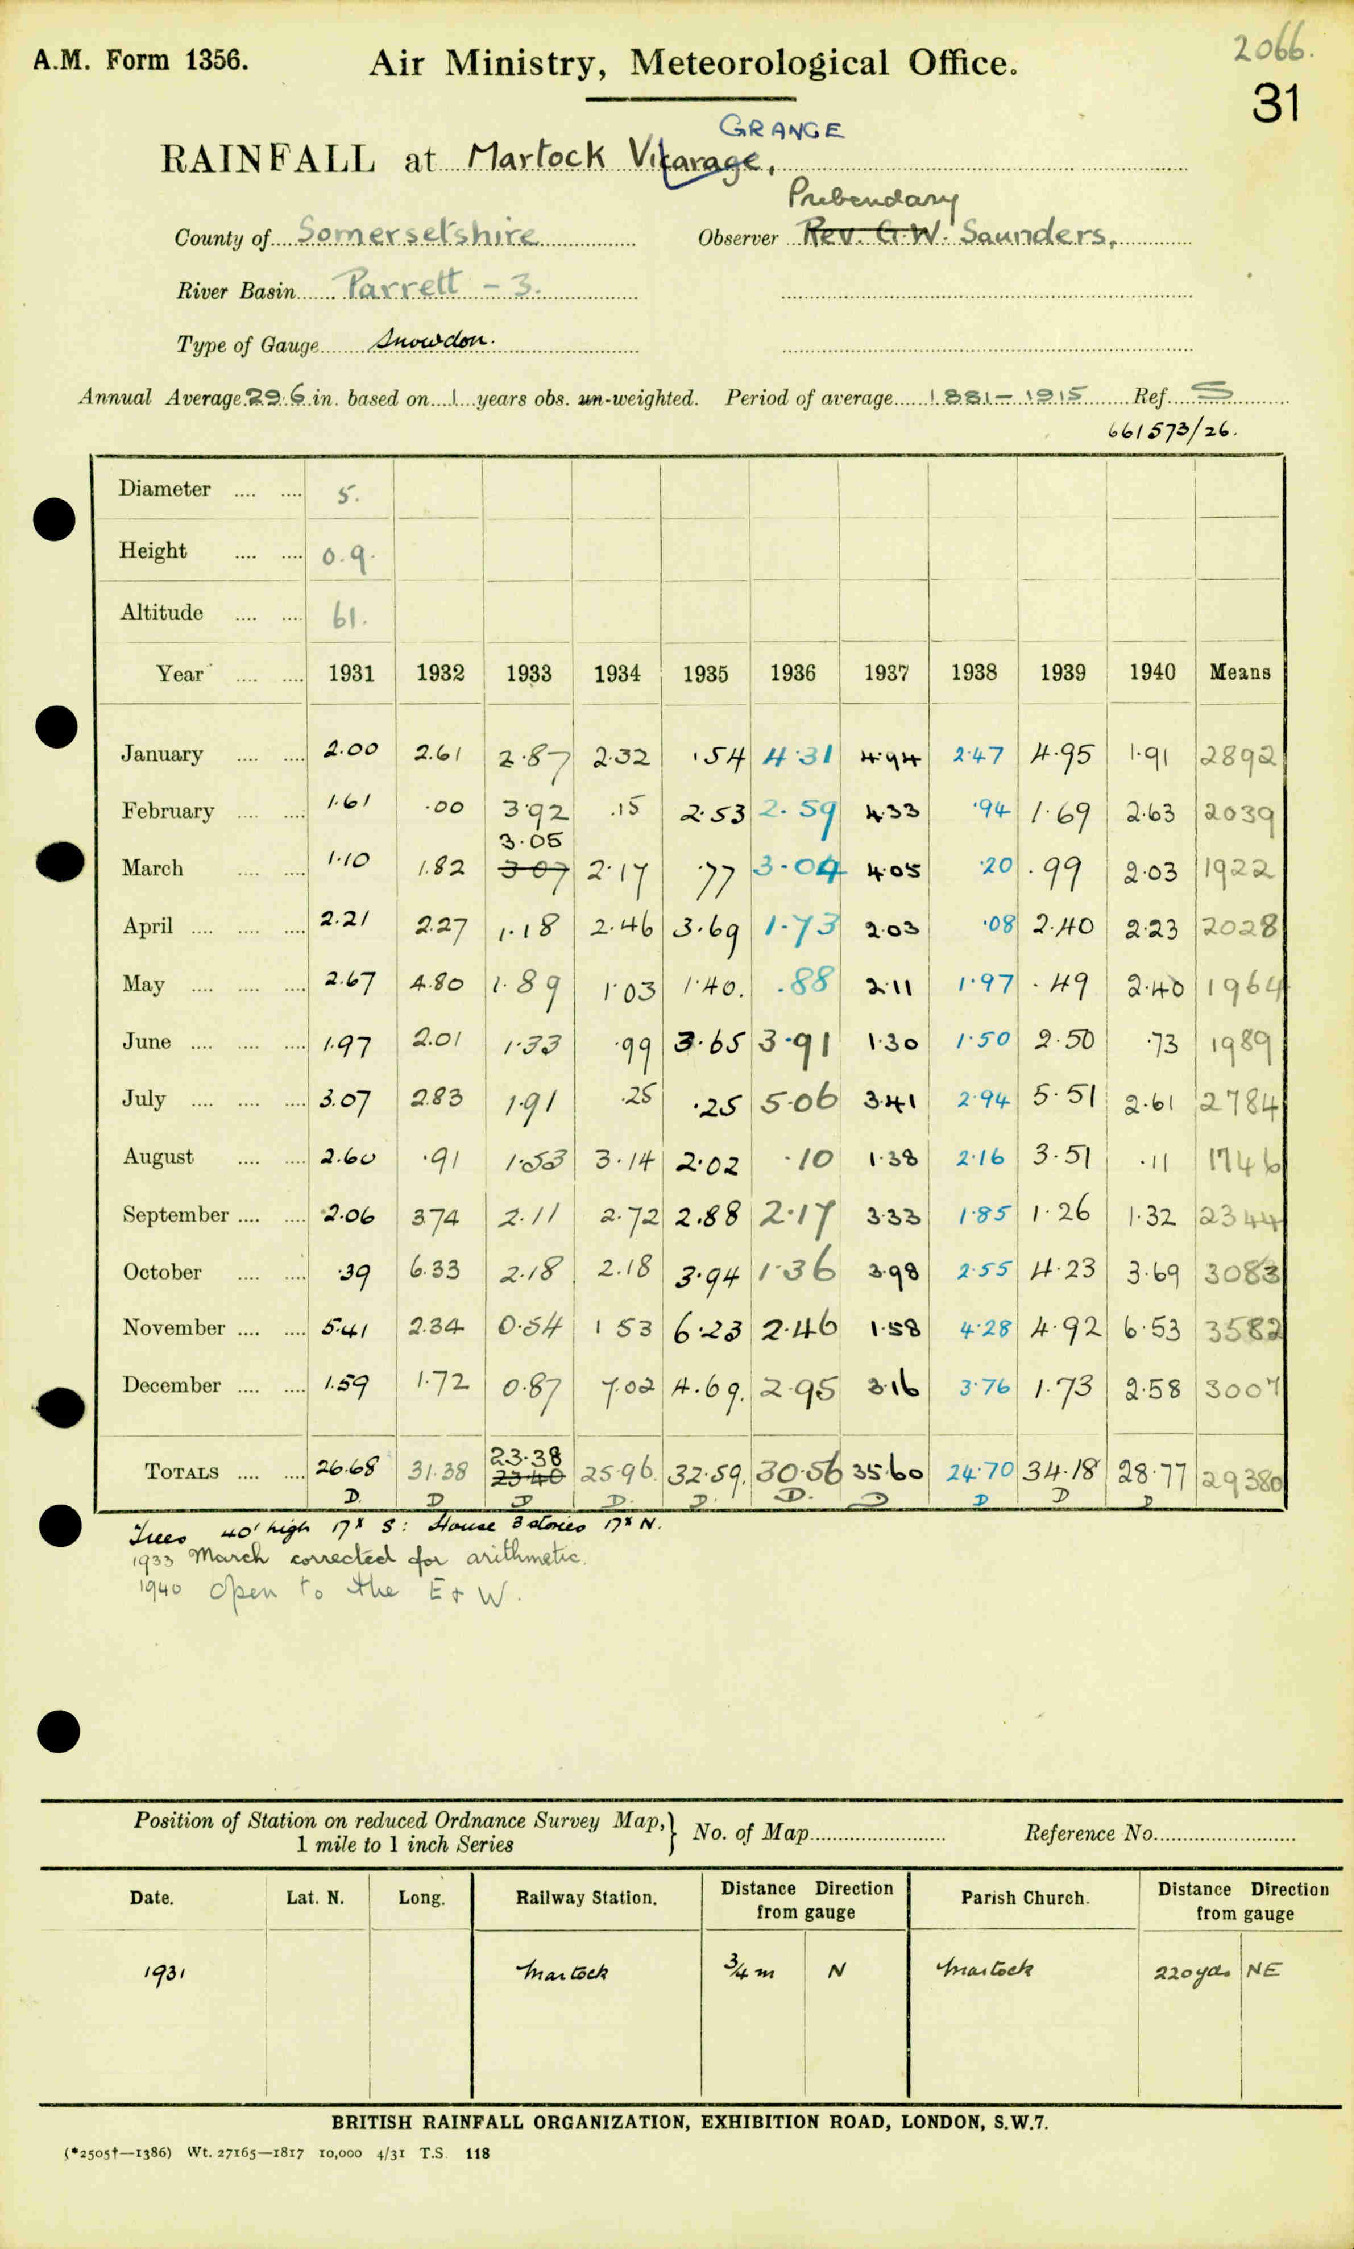 2066.
A.M. Form 1356. Air Ministry, Meteorological Office.
31
GRANGE
RAINFALL at Martock Vicarage,
Prebendary
County of Somersetshire Observer Rev. G.W. Saunders,
River Basin Parrett - 3.
Type of Gauge Snowdon.
Annual Average 29.6 in. based on 1 years obs. un-weighted. Period of average 1881-1915 Ref. S
661573/26.
Diameter .... .... 5.
Height .... .... 0.9.
Altitude .... .... 61.
Year .... .... 1931 1932 1933 1934 1935 1936 1937 1938 1939 1940 Means
January .... .... 2.00 2.61 2.87 2.32 .54 4.31 4.94 2.47 4.95 1.91 2892
February .... .... 1.61 .00 3.92 .15 2.53 2.59 4.33 .94 1.69 2.63 2039
3.05
March .... .... 1.10 1.82 3 07 2.17 .77 3.04 4.05 .20 .99 2.03 1922
April .... .... .... 2.21 2.27 1.18 2.46 3.69 1.73 2.03 .08 2.40 2.23 2028
May .... .... .... 2.67 4.80 1.89 1.03 1.40. .88 2.11 1.97 .49 2.40 1964
June .... .... .... 1.97 2.01 1.33 .99 3.65 3.91 1.30 1.50 2.50 .73 1989
July .... .... .... 3.07 2.83 1.91 .25 .25 5.06 3.41 2.94 5.51 2.61 2784
August .... .... 2.60 .91 1.53 3.14 2.02 .10 1.38 2.16 3.51 .11 1746
September .... .... 2.06 3.74 2.11 2.72 2.88 2.17 3.33 1.85 1.26 1.32 2344
October .... .... .39 6.33 2.18 2.18 3.94 1.36 3.98 2.55 4.23 3.69 3083
November .... .... 5.41 2.34 0.54 1 53 6.23 2.46 1.58 4.28 4.92 6.53 3582
December .... .... 1.59 1.72 0.87 7.02 4.69. 2.95 3.16 3.76 1.73 2.58 3007
23.38
TOTALS .... .... 26.68 31.38 23.40 25.96. 32.59. 30.56 35.60 24.70 34.18 28.77 29380
D. D D D. D. D. D D D D
Trees 40' high 17x S: House 3 stories 17x N.
1933 March corrected for arithmetic.
1940 Open to the E & W.
Position of Station on reduced Ordnance Survey Map, 1 mile to 1 inch Series } No. of Map Reference No.
Date. Lat. N. Long. Railway Station. Distance Direction from gauge Parish Church. Distance Direction from gauge
1931 Martock 3/4 m N Martock 220 yds NE
BRITISH RAINFALL ORGANIZATION, EXHIBITION ROAD, LONDON, S.W.7.
(*2505†—1386) Wt. 27165—1817 10,000 4/31 T.S. 118